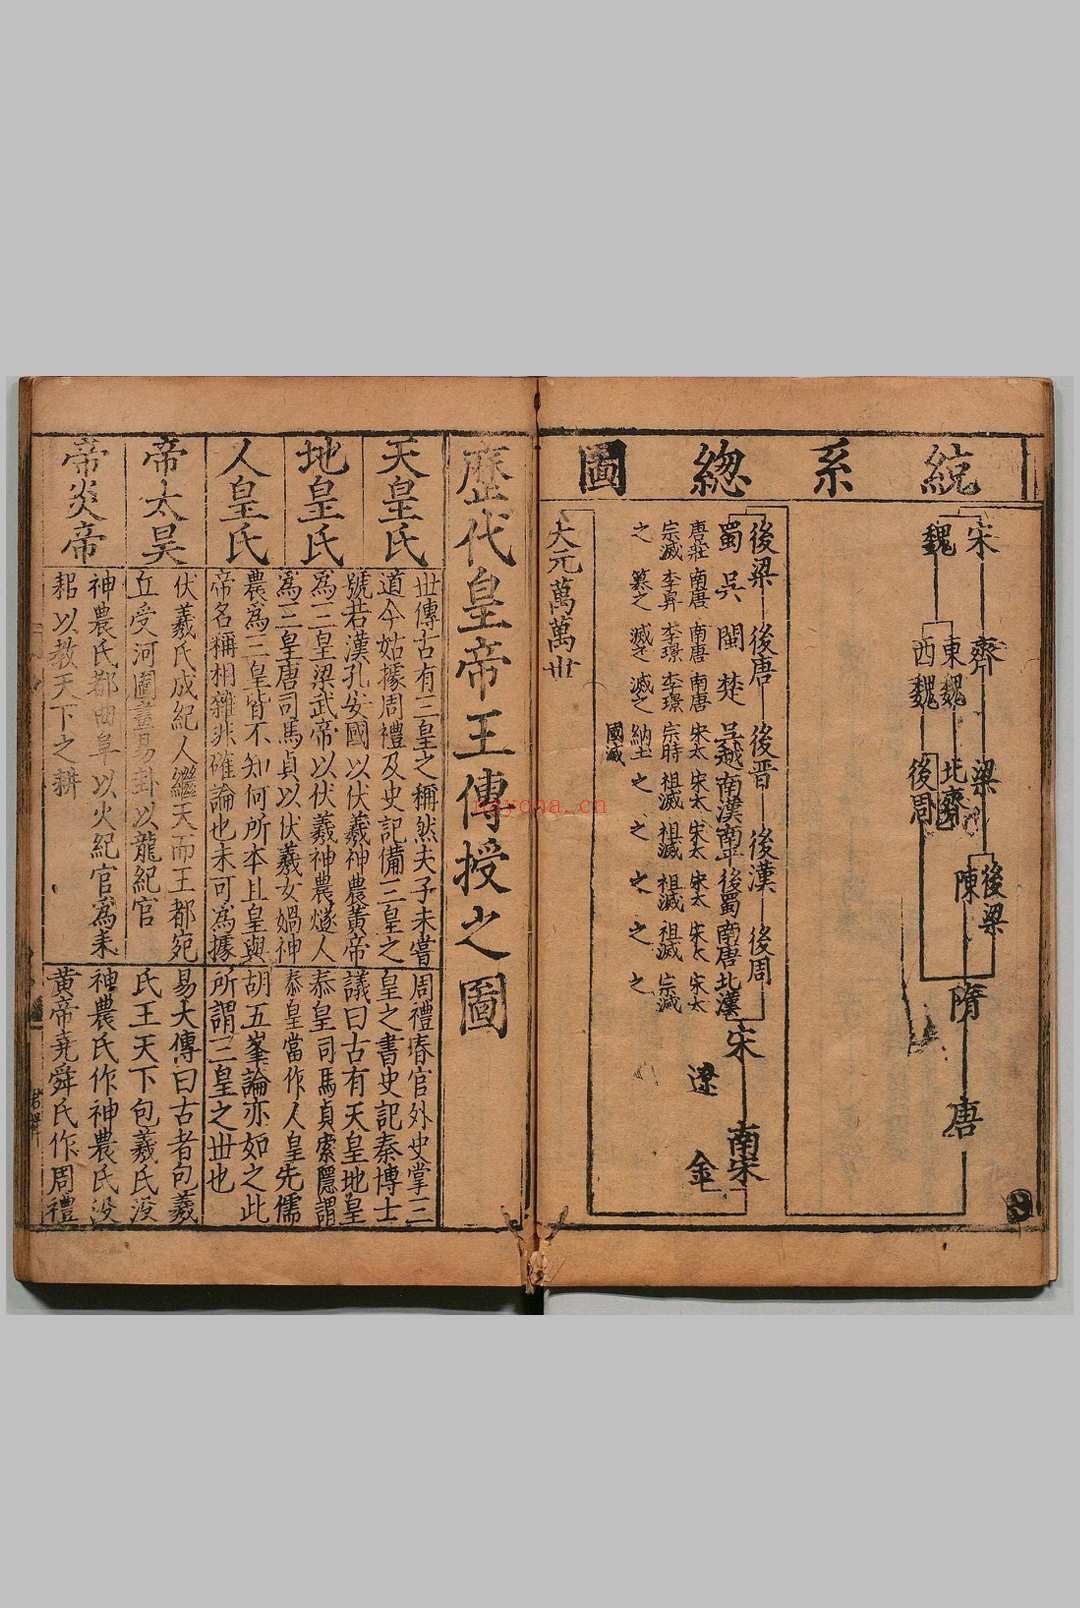 統系總圖
宋 齊 梁 後梁
魏 東魏 北齊 陳
西魏 後周
隋 唐
後梁 後唐 後晋 後漢 後周
蜀 吳 閩 楚 吳越 南漢 南平 後蜀 南唐 北漢
唐莊宗滅之
南唐李昪篡之
南唐李璟滅之
南唐李璟滅之
宋太宗時納土國滅
宋太祖滅之
宋太祖滅之
宋太祖滅之
宋太祖滅之
宋太宗滅之
宋 南宋
遼 金
大元萬萬世
歷代皇帝王傳授之圖
天皇氏
地皇氏
人皇氏
帝太昊
帝炎帝
世傳古有三皇之稱然夫子未嘗
道今姑據周禮及史記備三皇之
號若漢孔安國以伏羲神農黃帝
為三皇梁武帝以伏羲神農燧人
為三皇唐司馬貞以伏羲女媧神
農為三皇皆不知何所本且皇與
帝名稱相雜非確論也未可為據
伏羲氏成紀人繼天而王都宛
丘受河圖畫易卦以龍紀官
神農氏都曲阜以火紀官為耒
耜以教天下之耕
周禮春官外史掌三
皇之書史記秦博士
議曰古有天皇地皇
泰皇司馬貞索隱謂
泰皇當作人皇先儒
胡五峯論亦如之此
所謂三皇之世也
易大傳曰古者包羲
氏王天下包羲氏没
神農氏作神農氏没
黃帝堯舜氏作周禮
nayona.cn